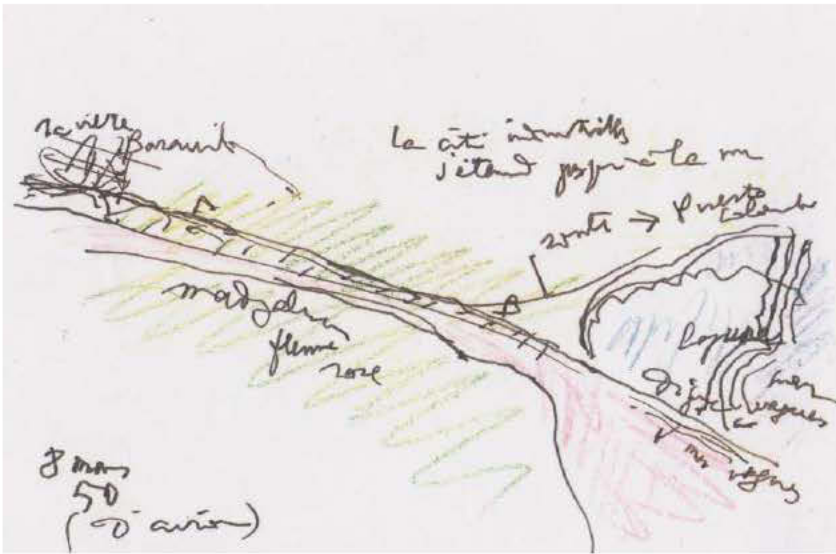 la ville
La cité industrielle
s'étend jusqu'à la mer
route → Puerto
Colombia
fleuve
rose
lagune
Digue
mer
vagues
mer vagues
50
(D'avion)